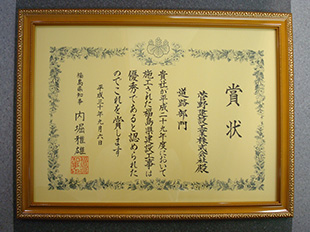 賞状
道路部門
菅野建設工業株式会社殿
貴社が平成二十九年度において
施工された福島県建設工事は
優秀であると認められた
のでこれを賞します
平成三十年九月六日
福島県知事 内堀雅雄